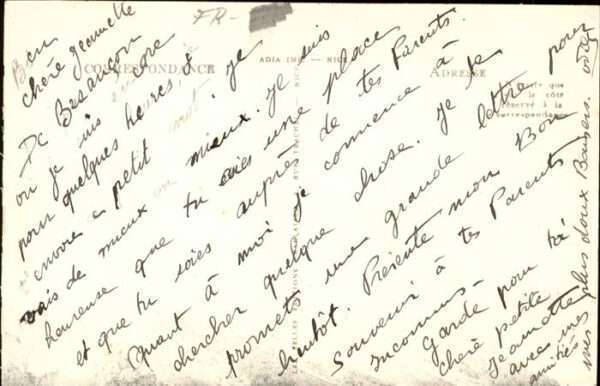 FR-
CORRESPONDANCE
ADIA
NICE
ADRESSE
chère Jeannette
De Besançon
où je suis encore
pour quelques heures, je
t'envoie un petit mot. Je
vais de mieux en mieux. Je suis
heureuse que tu aies une place
et que tu sois auprès de tes Parents.
Quant à moi je commence à
chercher quelque chose. Je te
promets une grande lettre pour
bientôt. Présente mon Bon
souvenir à tes Parents
inconnus
Garde pour toi
chère petite
Jeannette
avec mes
amitiés
mes plus doux Baisers.